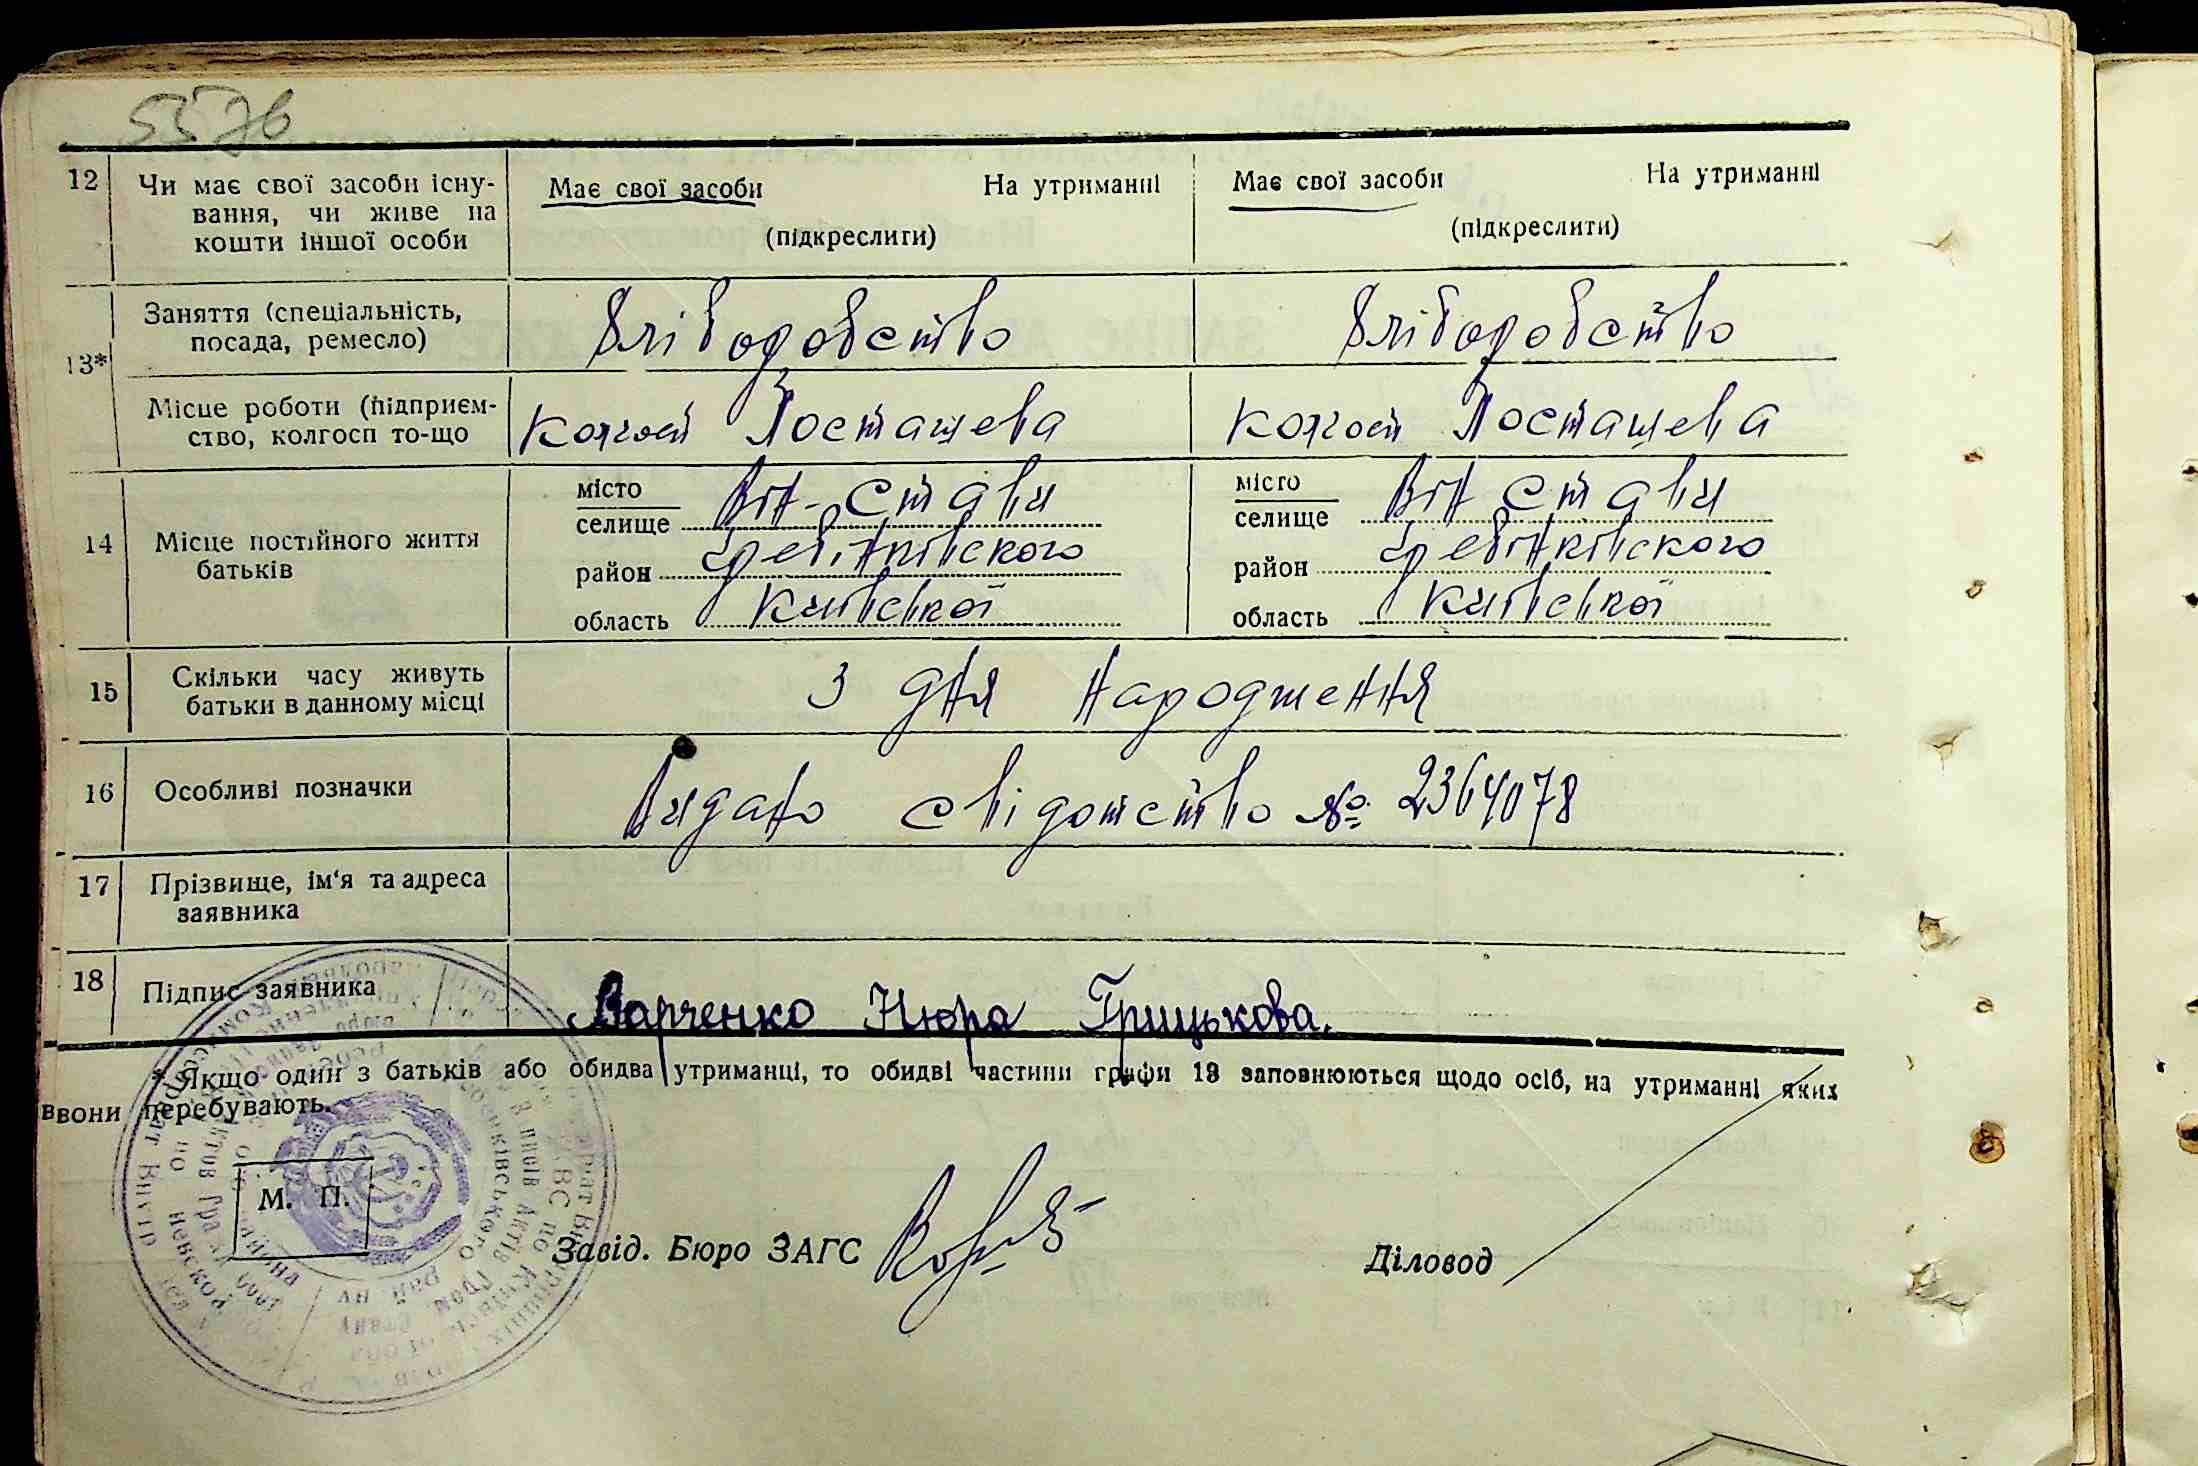 557б
12 Чи має свої засоби існу- Має свої засоби На утриманні Має свої засоби На утриманні
вання, чи живе на
кошти іншої особи (підкреслити) (підкреслити)
13* Заняття (спеціальність, Хліборобство Хліборобство
посада, ремесло)
Місце роботи (підприєм- колгосп Постишева колгосп Постишева
ство, колгосп то-що
14 Місце постійного життя батьків
місто місто
селище стави селище стави
район Гребінківского район Гребінківского
область Київської область Київської
15 Скільки часу живуть З дня народження
батьки в данному місці
16 Особливі позначки Видано свідотство № 2364078
17 Прізвище, ім'я та адреса
заявника
18 Підпис заявника Варченко Нюра Грицькова.
* Якщо один з батьків або обидва утриманці, то обидві частини графи 13 заповнюються щодо осіб, на утриманні яких
вони перебувають.
М. П.
Завід. Бюро ЗАГС
Діловод